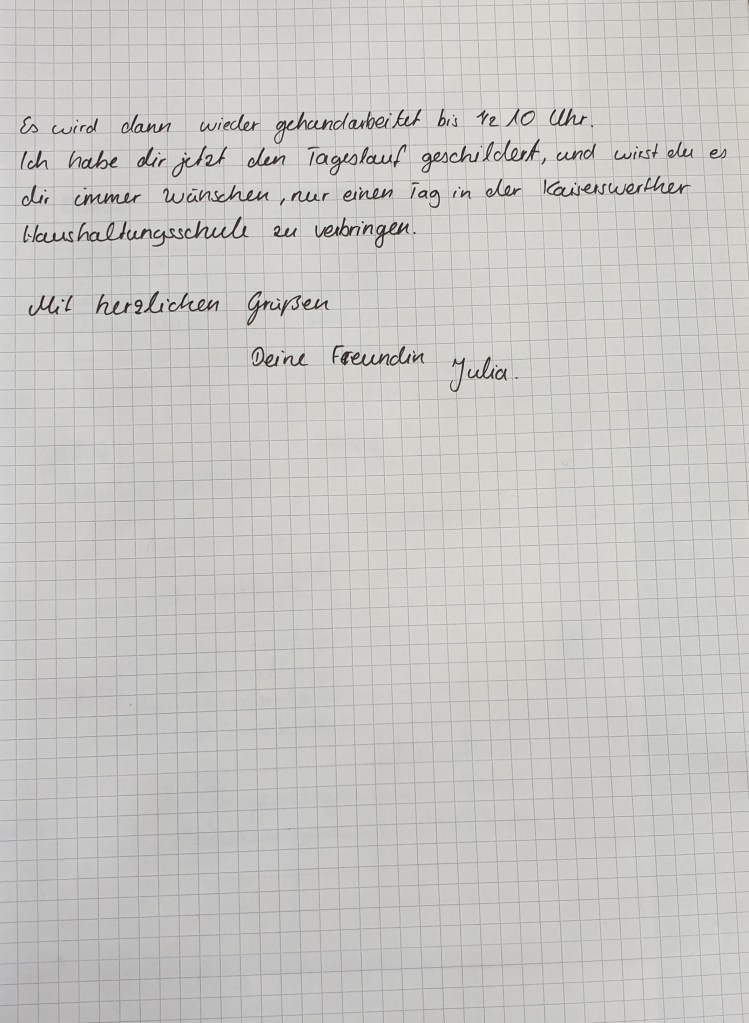 Es wird dann wieder gehandarbeitet bis 1/2 10 Uhr.
Ich habe dir jetzt den Tageslauf geschildert, und wirst du es
dir immer wünschen, nur einen Tag in der Kaiserswerther
Haushaltungsschule zu verbringen.
Mit herzlichen Grüßen
Deine Freundin Julia.